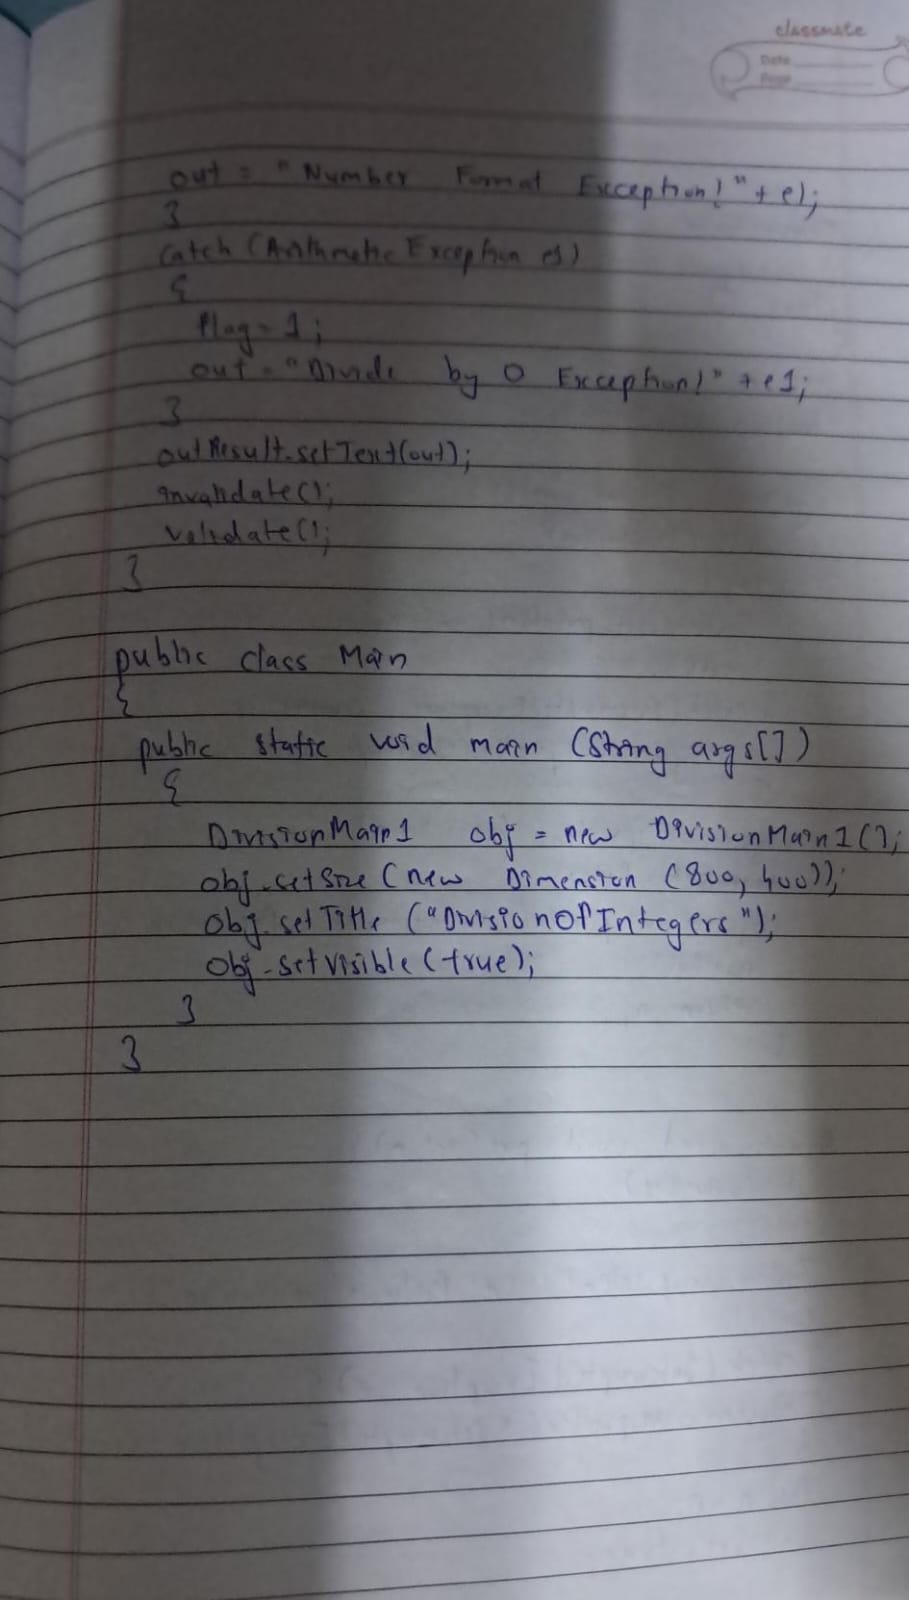 classmate
Date
Page
out = "Number Format Exception!" + e1;
}
catch (Arithmetic Exception e1)
{
flag = 1;
out = "Divide by 0 Exception!" + e1;
}
outResult.setText(out);
invalidate();
validate();
}
public class Main
{
public static void main (String args[])
{
DivisionMain1 obj = new DivisionMain1();
obj.setSize (new Dimension (800, 400));
obj.setTitle ("DivisionOfIntegers");
obj.setVisible (true);
}
}